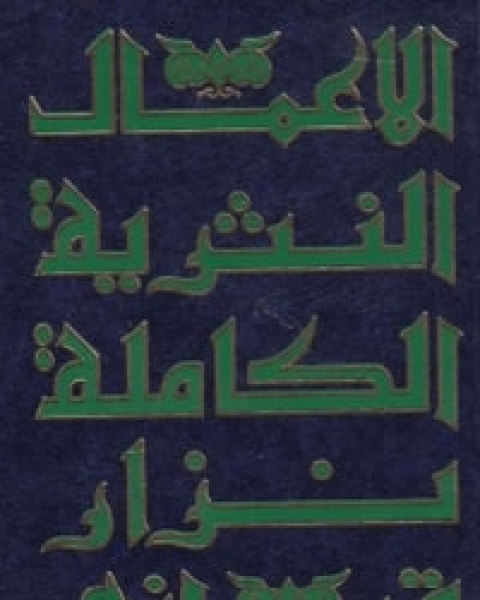 الأعمال
النثرية
الكاملة
نزار